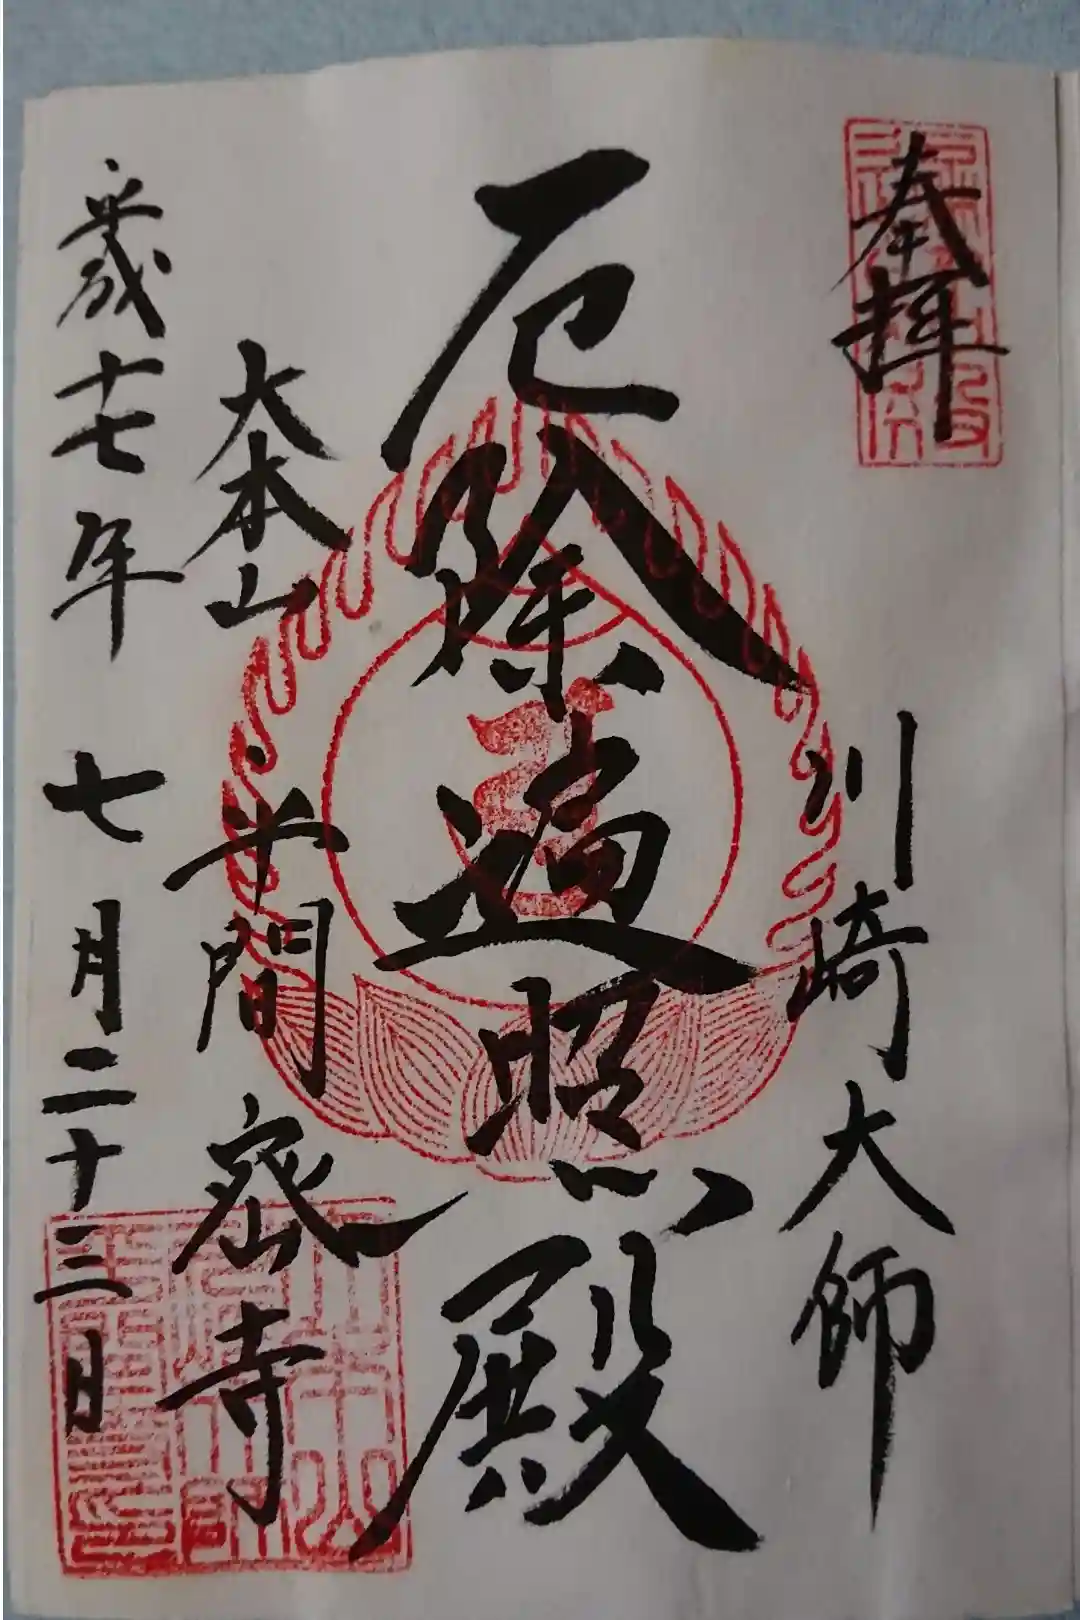 奉拝
川崎大師
厄除遍照殿
大本山 平間密寺
平成廿七年 七月二十三日